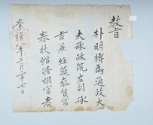 敎旨
朴明榑爲通政大
夫承政院右副承
旨兼經筵參贊官
春秋館修撰官者
崇禎年月日